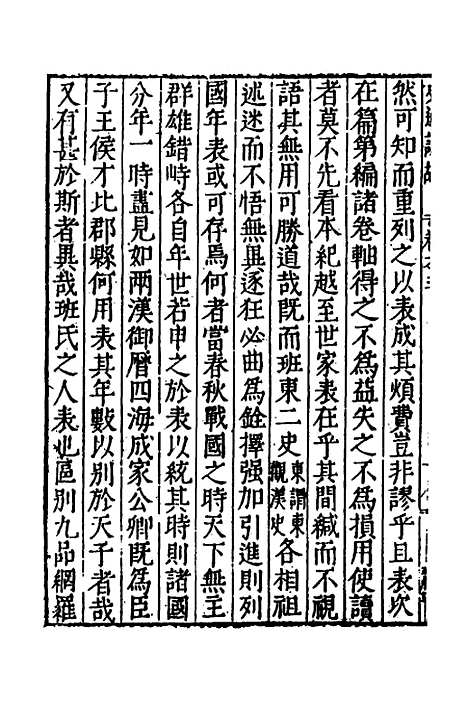 然可知而重列之以表成其煩費豈非謬乎且表次
在篇第編諸卷軸得之不為益失之不為損用使讀
者莫不先看本紀越至世家表在乎其間緘而不視
語其無用可勝道哉既而班東二史東謂東觀漢史各相祖
述迷而不悟無異逐狂必曲為銓擇强加引進則列
國年表或可存焉何者當春秋戰國之時天下無主
群雄錯峙各自年世若申之於表以統其時則諸國
分年一時盡見如兩漢御曆四海成家公卿既為臣
子王侯才比郡縣何用表其年數以別於天子者哉
又有甚於斯者異哉班氏之人表也區別九品網羅